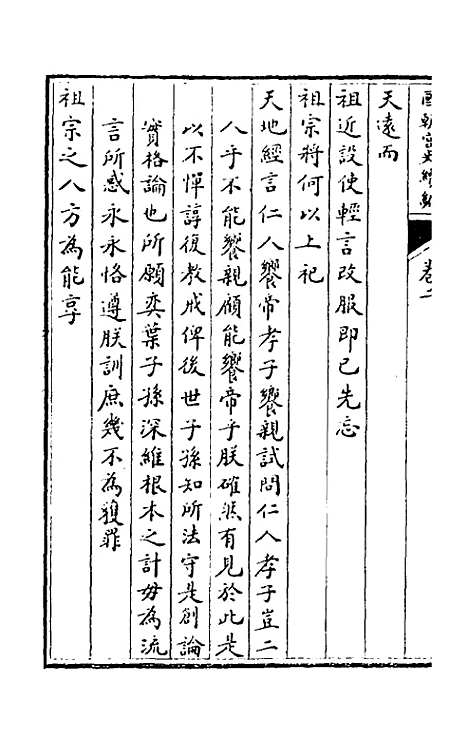 國朝宮史續編 卷二
天遠而
祖近設使輕言改服即已先忘
祖宗將何以上祀
天地經言仁人饗帝孝子饗親試問仁人孝子豈二
人乎不能饗親顧能饗帝乎朕確然有見於此是
以不憚諄復教戒俾後世子孫知所法守是創論
實格論也所願奕葉子孫深維根本之計毋為流
言所惑永永恪遵朕訓庶幾不為獲罪
祖宗之人方為能享